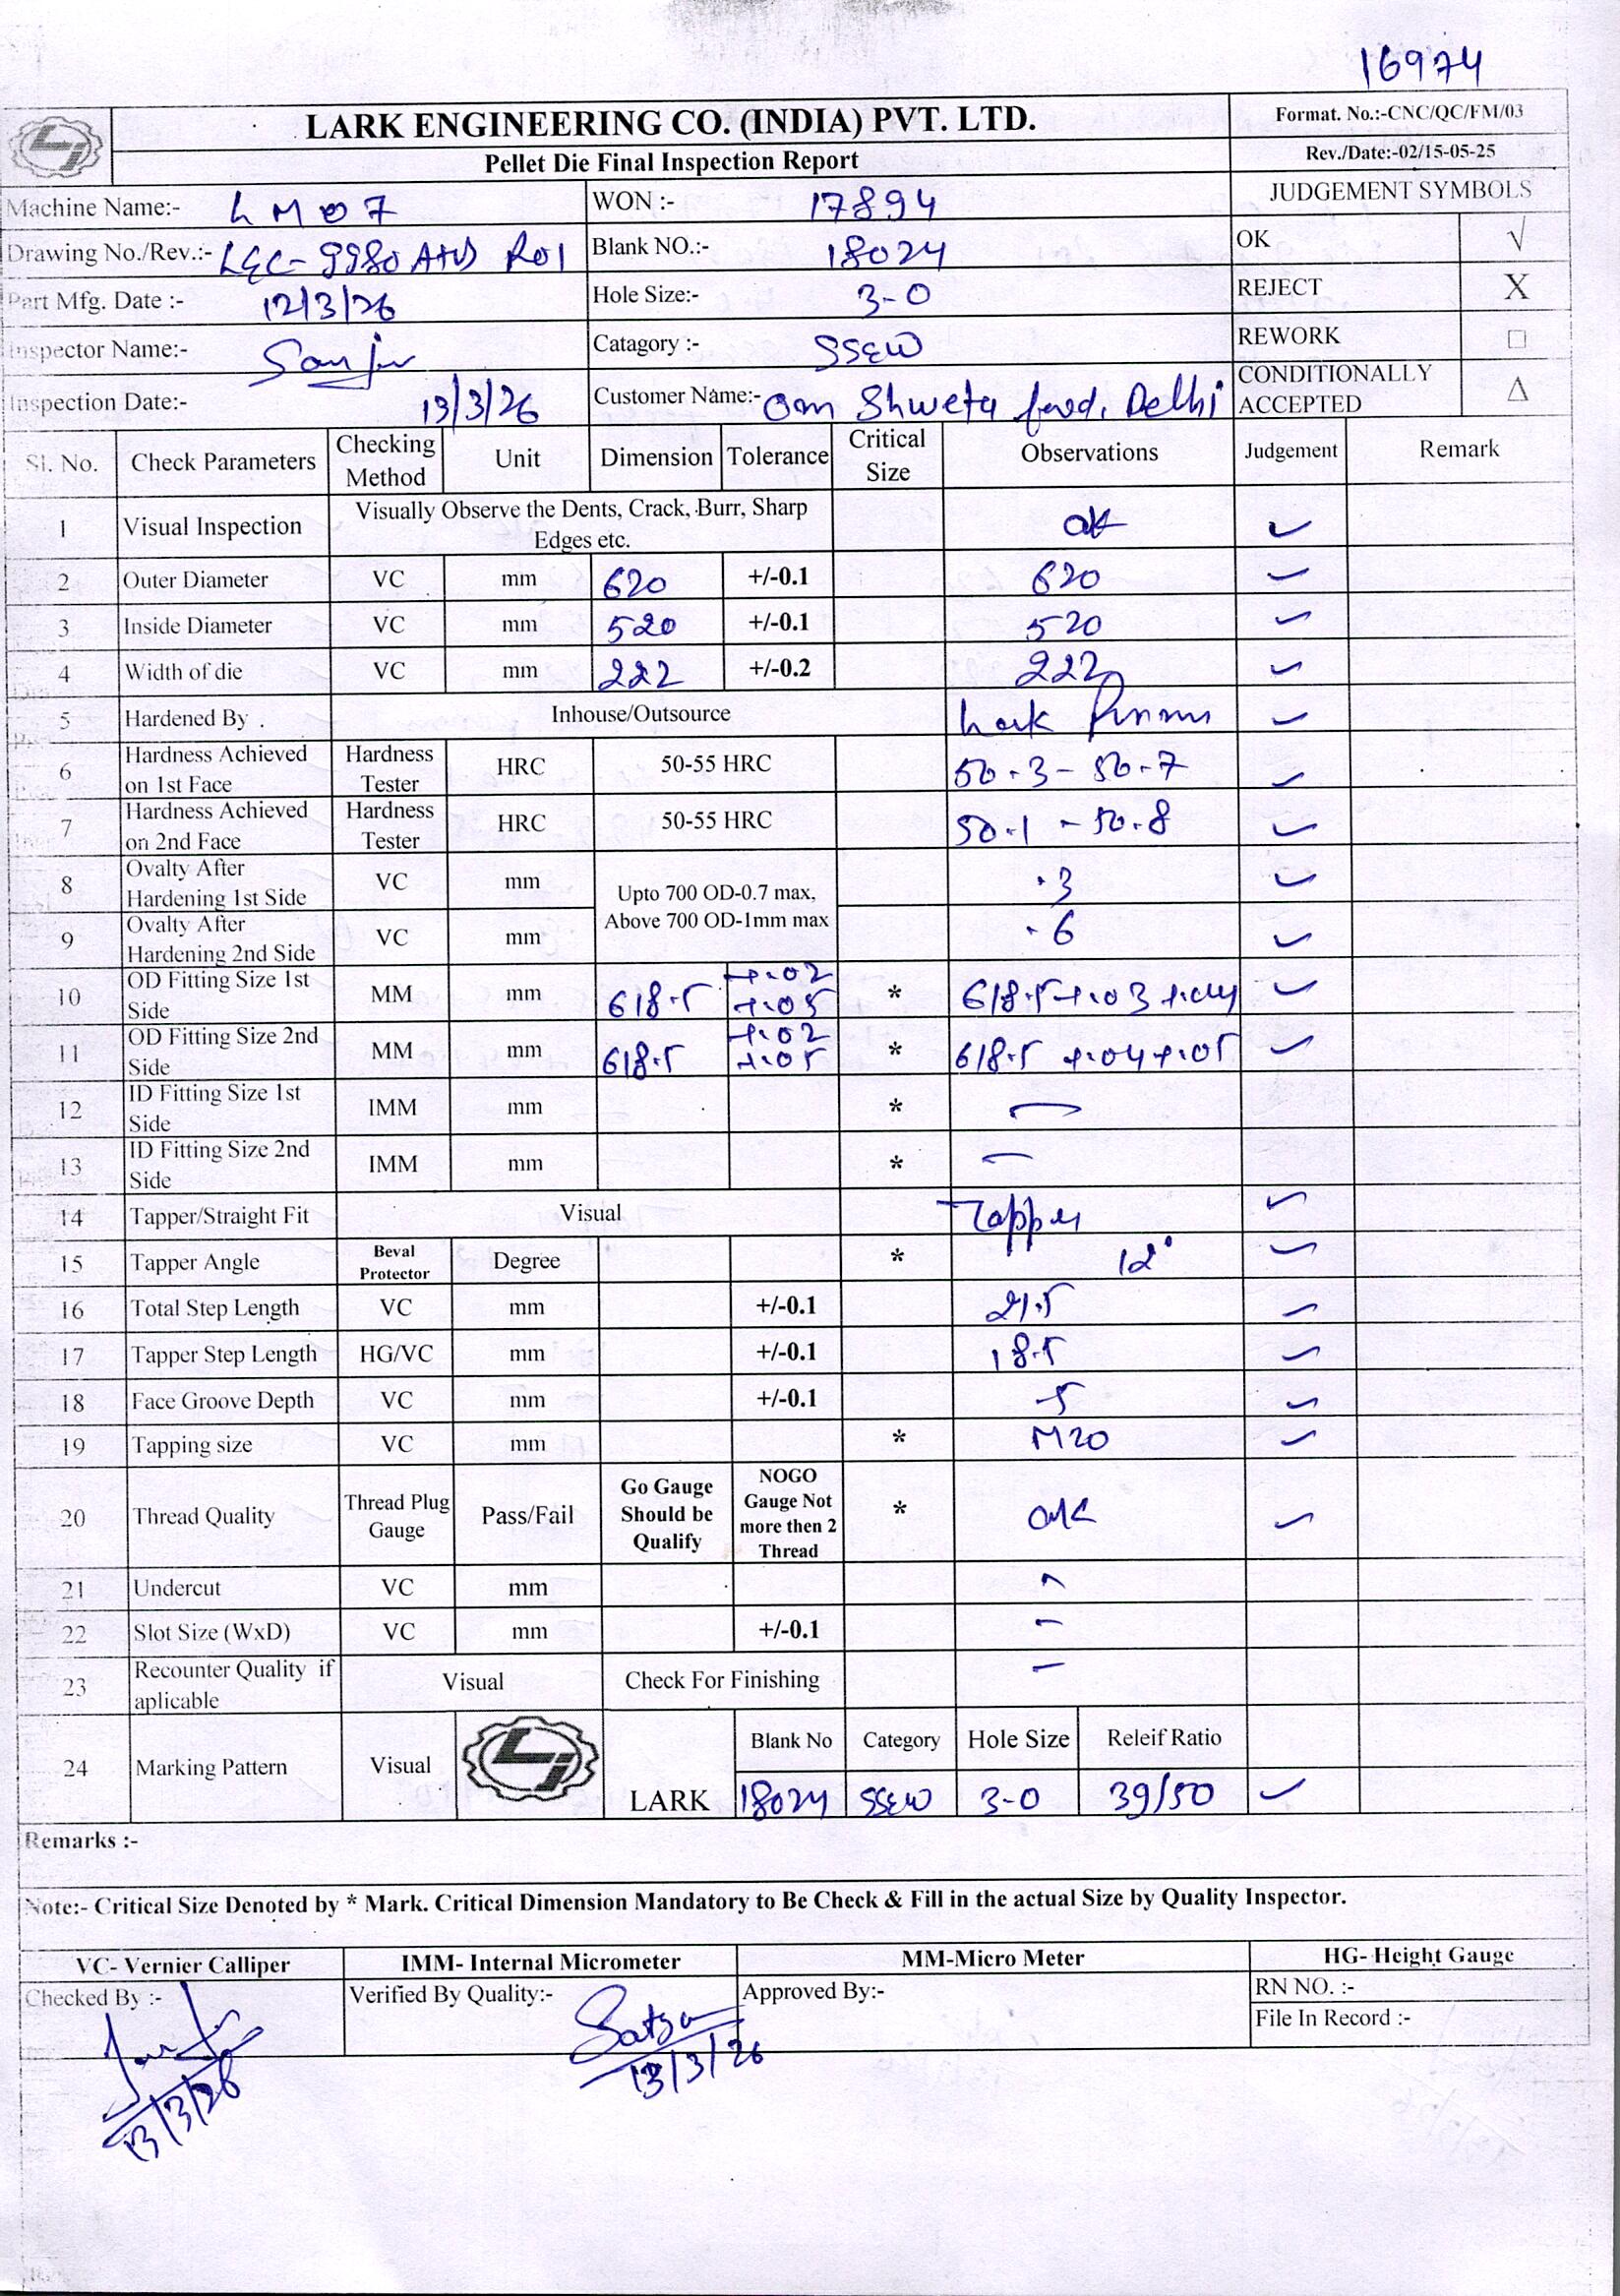 16974
LARK ENGINEERING CO. (INDIA) PVT. LTD.
Pellet Die Final Inspection Report
Format. No.:-CNC/QC/FM/03
Rev./Date:-02/15-05-25
Machine Name:- LM07 WON :- 17894 JUDGEMENT SYMBOLS
Drawing No./Rev.:- R01 Blank NO.:- 18024 OK √
Part Mfg. Date :- 12/3/26 Hole Size:- 3-0 REJECT X
Inspector Name:- Sanju Catagory :- SSEW REWORK □
Inspection Date:- 13/3/26 Customer Name:- Om Shweta feed, Delhi CONDITIONALLY ACCEPTED Δ
Sl. No. Check Parameters Checking Method Unit Dimension Tolerance Critical Size Observations Judgement Remark
1 Visual Inspection Visually Observe the Dents, Crack, Burr, Sharp Edges etc. ok ✓
2 Outer Diameter VC mm 620 +/-0.1 620 ✓
3 Inside Diameter VC mm 520 +/-0.1 520 ✓
4 Width of die VC mm 222 +/-0.2 222 ✓
5 Hardened By . Inhouse/Outsource Lark ✓
6 Hardness Achieved on 1st Face Hardness Tester HRC 50-55 HRC 50.3 - 50.7 ✓
7 Hardness Achieved on 2nd Face Hardness Tester HRC 50-55 HRC 50.1 - 50.8 ✓
8 Ovalty After Hardening 1st Side VC mm Upto 700 OD-0.7 max, Above 700 OD-1mm max .3 ✓
9 Ovalty After Hardening 2nd Side VC mm .6 ✓
10 OD Fitting Size 1st Side MM mm 618.5 +.02 +.05 * 618.5 +.03 +.04 ✓
11 OD Fitting Size 2nd Side MM mm 618.5 +.02 +.05 * 618.5 +.04 +.05 ✓
12 ID Fitting Size 1st Side IMM mm * —
13 ID Fitting Size 2nd Side IMM mm * —
14 Tapper/Straight Fit Visual Tapper ✓
15 Tapper Angle Beval Protector Degree * 12° ✓
16 Total Step Length VC mm +/-0.1 21.5 ✓
17 Tapper Step Length HG/VC mm +/-0.1 18.5 ✓
18 Face Groove Depth VC mm +/-0.1 5 ✓
19 Tapping size VC mm * M20 ✓
20 Thread Quality Thread Plug Gauge Pass/Fail Go Gauge Should be Qualify NOGO Gauge Not more then 2 Thread * ok ✓
21 Undercut VC mm -
22 Slot Size (WxD) VC mm +/-0.1 -
23 Recounter Quality if aplicable Visual Check For Finishing -
24 Marking Pattern Visual LARK Blank No Category Hole Size Releif Ratio
18024 SSEW 3-0 39/50 ✓
Remarks :-
Note:- Critical Size Denoted by * Mark. Critical Dimension Mandatory to Be Check & Fill in the actual Size by Quality Inspector.
VC- Vernier Calliper IMM- Internal Micrometer MM-Micro Meter HG- Height Gauge
Checked By :- Verified By Quality:- Approved By:- RN NO. :-
File In Record :-
13/3/26 13/3/26